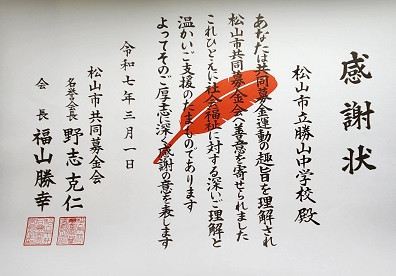 感謝状
松山市立勝山中学校 殿
あなたは共同募金運動の趣旨を理解され
松山市共同募金会へ善意を寄せられました
これひとえに社会福祉に対する深いご理解と
温かいご支援のたまものであります
よってそのご厚志に深く感謝の意を表します
令和七年三月一日
松山市共同募金会
名誉会長 野志克仁
会長 福山勝幸